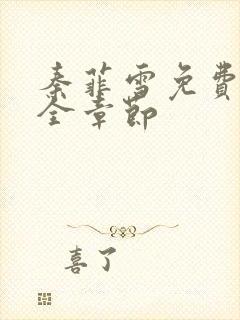 秦菲雪免费
全章节
喜了